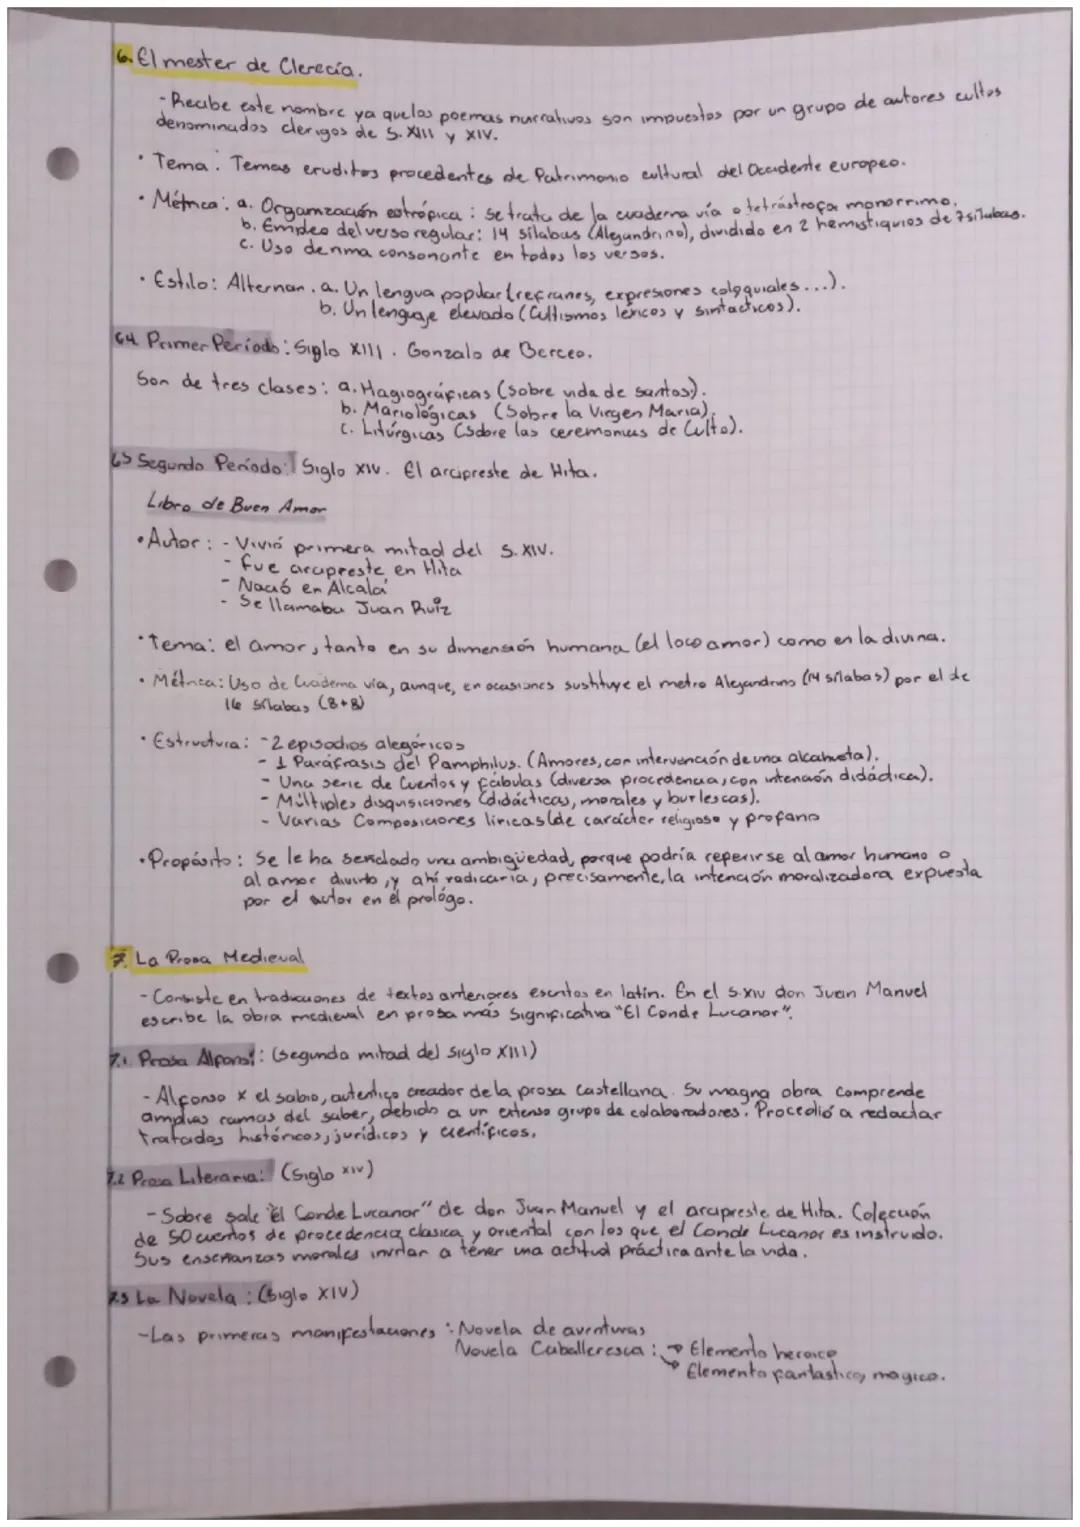 6. El mester de Clerecía.
- Recibe este nombre ya que los poemas narrativos son impuestos por un grupo de autores cultos
denominados clerigos de S. XIII y XIV.
• Tema: Temas eruditos procedentes de Patrimonio cultural del Occidente europeo.
• Métrica: a. Organización estrófica: se trata de la cuaderna vía o tetrástrofa monorrimo.
b. Empleo del verso regular: 14 sílabas (Alejandrino), dividido en 2 hemistiquios de 7 sílabas.
c. Uso de rima consonante en todos los versos.
• Estilo: Alternan. a. Un lengua popular (refranes, expresiones coloquiales...).
b. Un lenguaje elevado (Cultismos léxicos y sintacticos).
Primer Período: Siglo XIII. Gonzalo de Berceo.
Son de tres clases: a. Hagiográficas (Sobre vida de santos).
b. Mariológicas (Sobre la Virgen María).
c. Litúrgicas (Sobre las ceremonias de Culto).
Segundo Período: Siglo XIV. El arcipreste de Hita.
Libro de Buen Amor
• Autor: - Vivió primera mitad del S. XIV.
- Fue arcipreste en Hita
- Nació en Alcalá
- Se llamaba Juan Ruiz
• Tema: el amor, tanto en su dimensión humana (el loco amor) como en la divina.
• Métrica: Uso de Cuaderna vía, aunque, en ocasiones sustituye el metro Alejandrino (14 sílabas) por el de
16 sílabas (8+8)
• Estructura: - 2 episodios alegóricos
- 1 Paráfrasis del Pamphilus. (Amores, con intervención de una alcahueta).
- Una serie de Cuentos y fábulas (diversa procedencia, con intención didáctica).
- Múltiples disquisiciones (didácticas, morales y burlescas).
- Varias Composiciones líricas (de carácter religioso y profano
• Propósito: Se le ha señalado una ambigüedad, porque podría referirse al amor humano o
al amor divino, y ahí radicaría, precisamente, la intención moralizadora expuesta
por el autor en el prológo.
7. La Prosa Medieval
- Consiste en traducciones de textos anteriores escritos en latín. En el s. XIV don Juan Manuel
escribe la obra medieval en prosa más significativa "El Conde Lucanor".
7.1. Prosa Alfonsí: (segunda mitad del siglo XIII)
- Alfonso X el sabio, autentico creador de la prosa Castellana. Su magna obra comprende
amplias ramas del saber, debido a un extenso grupo de colaboradores. Procedió a redactar
tratados históricos, jurídicos y científicos.
7.2 Prosa Literaria: (Siglo XIV)
- Sobre sale "El Conde Lucanor" de don Juan Manuel y el arcipreste de Hita. Colección
de 50 cuentos de procedencia clasica y oriental con los que el Conde Lucanor es instruido.
Sus enseñanzas morales invitar a tener una actitud práctica ante la vida.
7.3 La Novela: (Siglo XIV)
- Las primeras manifestaciones: Novela de aventuras
Novela Caballeresca: → Elemento heroico
→ Elemento fantastico, magico.